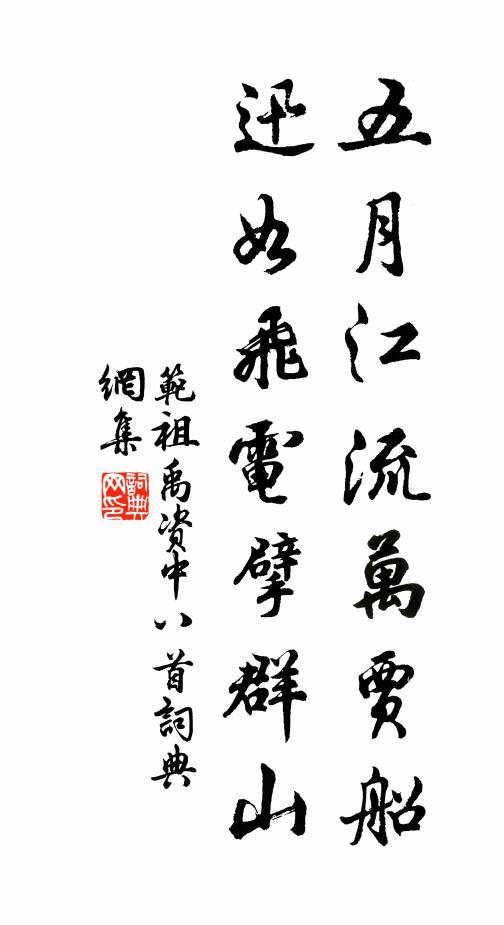 五月江流萬賈船
迅如飛電擘群山
範祖禹資中八首詞典
網集
詞典
网印